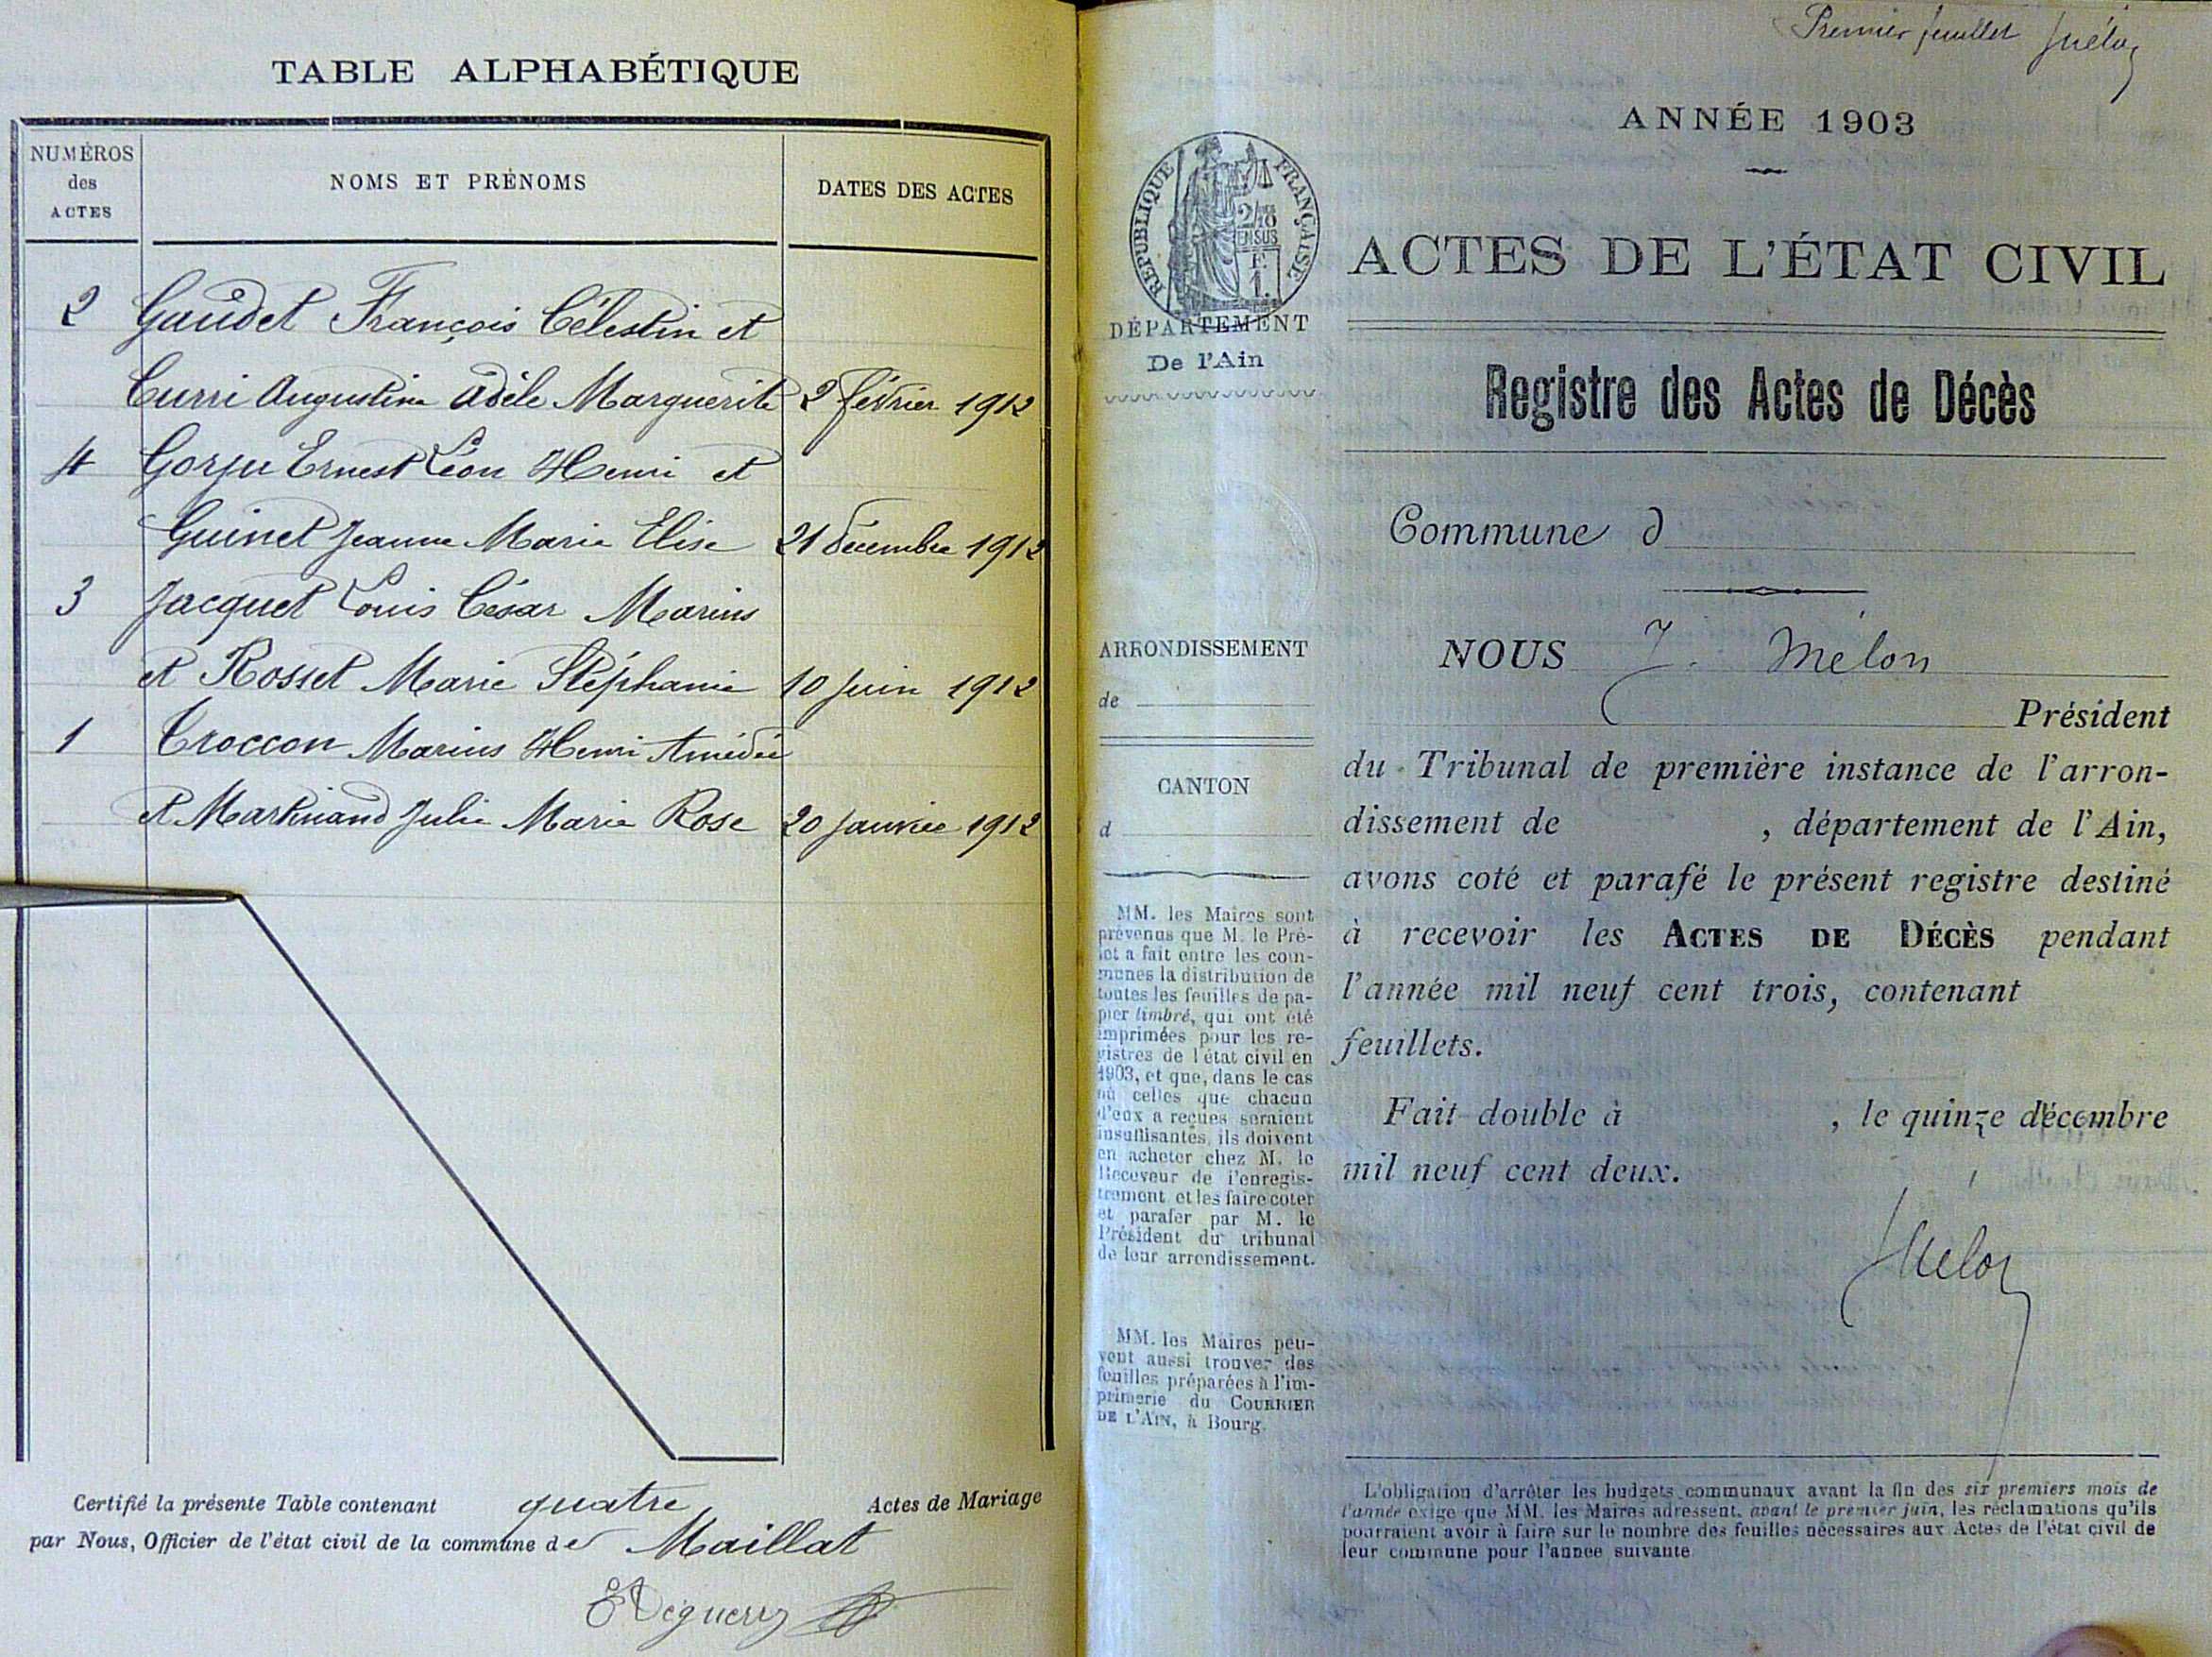 TABLE ALPHABÉTIQUE
NUMÉROS
des
ACTES
NOMS ET PRÉNOMS
DATES DES ACTES
2 Gaudet François Célestin et
Curri Augustine Adèle Marguerite 2 février 1912
4 Gorju Ernest Léon Henri et
Guinet Jeanne Marie Elise 21 décembre 1912
3 Jacquet Louis César Marius
et Rosset Marie Stéphanie 10 juin 1912
1 Croccon Marius Henri Amédée
et Martinand Julie Marie Rose 20 janvier 1912
Certifié la présente Table contenant quatre Actes de Mariage
par Nous, Officier de l'état civil de la commune de Maillat
Premier feuillet
ANNÉE 1903
RÉPUBLIQUE FRANÇAISE
DÉPARTEMENT
De l'Ain
ACTES DE L'ÉTAT CIVIL
Registre des Actes de Décès
Commune d
ARRONDISSEMENT
de
CANTON
d
MM. les Maires sont
prévenus que M. le Pré-
fet a fait entre les com-
munes la distribution de
toutes les feuilles de pa-
pier timbré, qui ont été
imprimées pour les re-
gistres de l'état civil en
1903, et que, dans le cas
où celles que chacun
d'eux a reçues seraient
insuffisantes, ils doivent
en acheter chez M. le
Receveur de l'enregis-
trement et les faire coter
et parafer par M. le
Président du tribunal
de leur arrondissement.
MM. les Maires peu-
vent aussi trouver des
feuilles préparées à l'im-
primerie du COURRIER
DE L'AIN, à Bourg.
NOUS J. Mélon
Président
du Tribunal de première instance de l'arron-
dissement de , département de l'Ain,
avons coté et parafé le présent registre destiné
à recevoir les ACTES DE DÉCÈS pendant
l'année mil neuf cent trois, contenant
feuillets.
Fait double à , le quinze décembre
mil neuf cent deux.
L'obligation d'arrêter les budgets communaux avant la fin des six premiers mois de
l'année exige que MM. les Maires adressent, avant le premier juin, les réclamations qu'ils
pourraient avoir à faire sur le nombre des feuilles nécessaires aux Actes de l'état civil de
leur commune pour l'année suivante